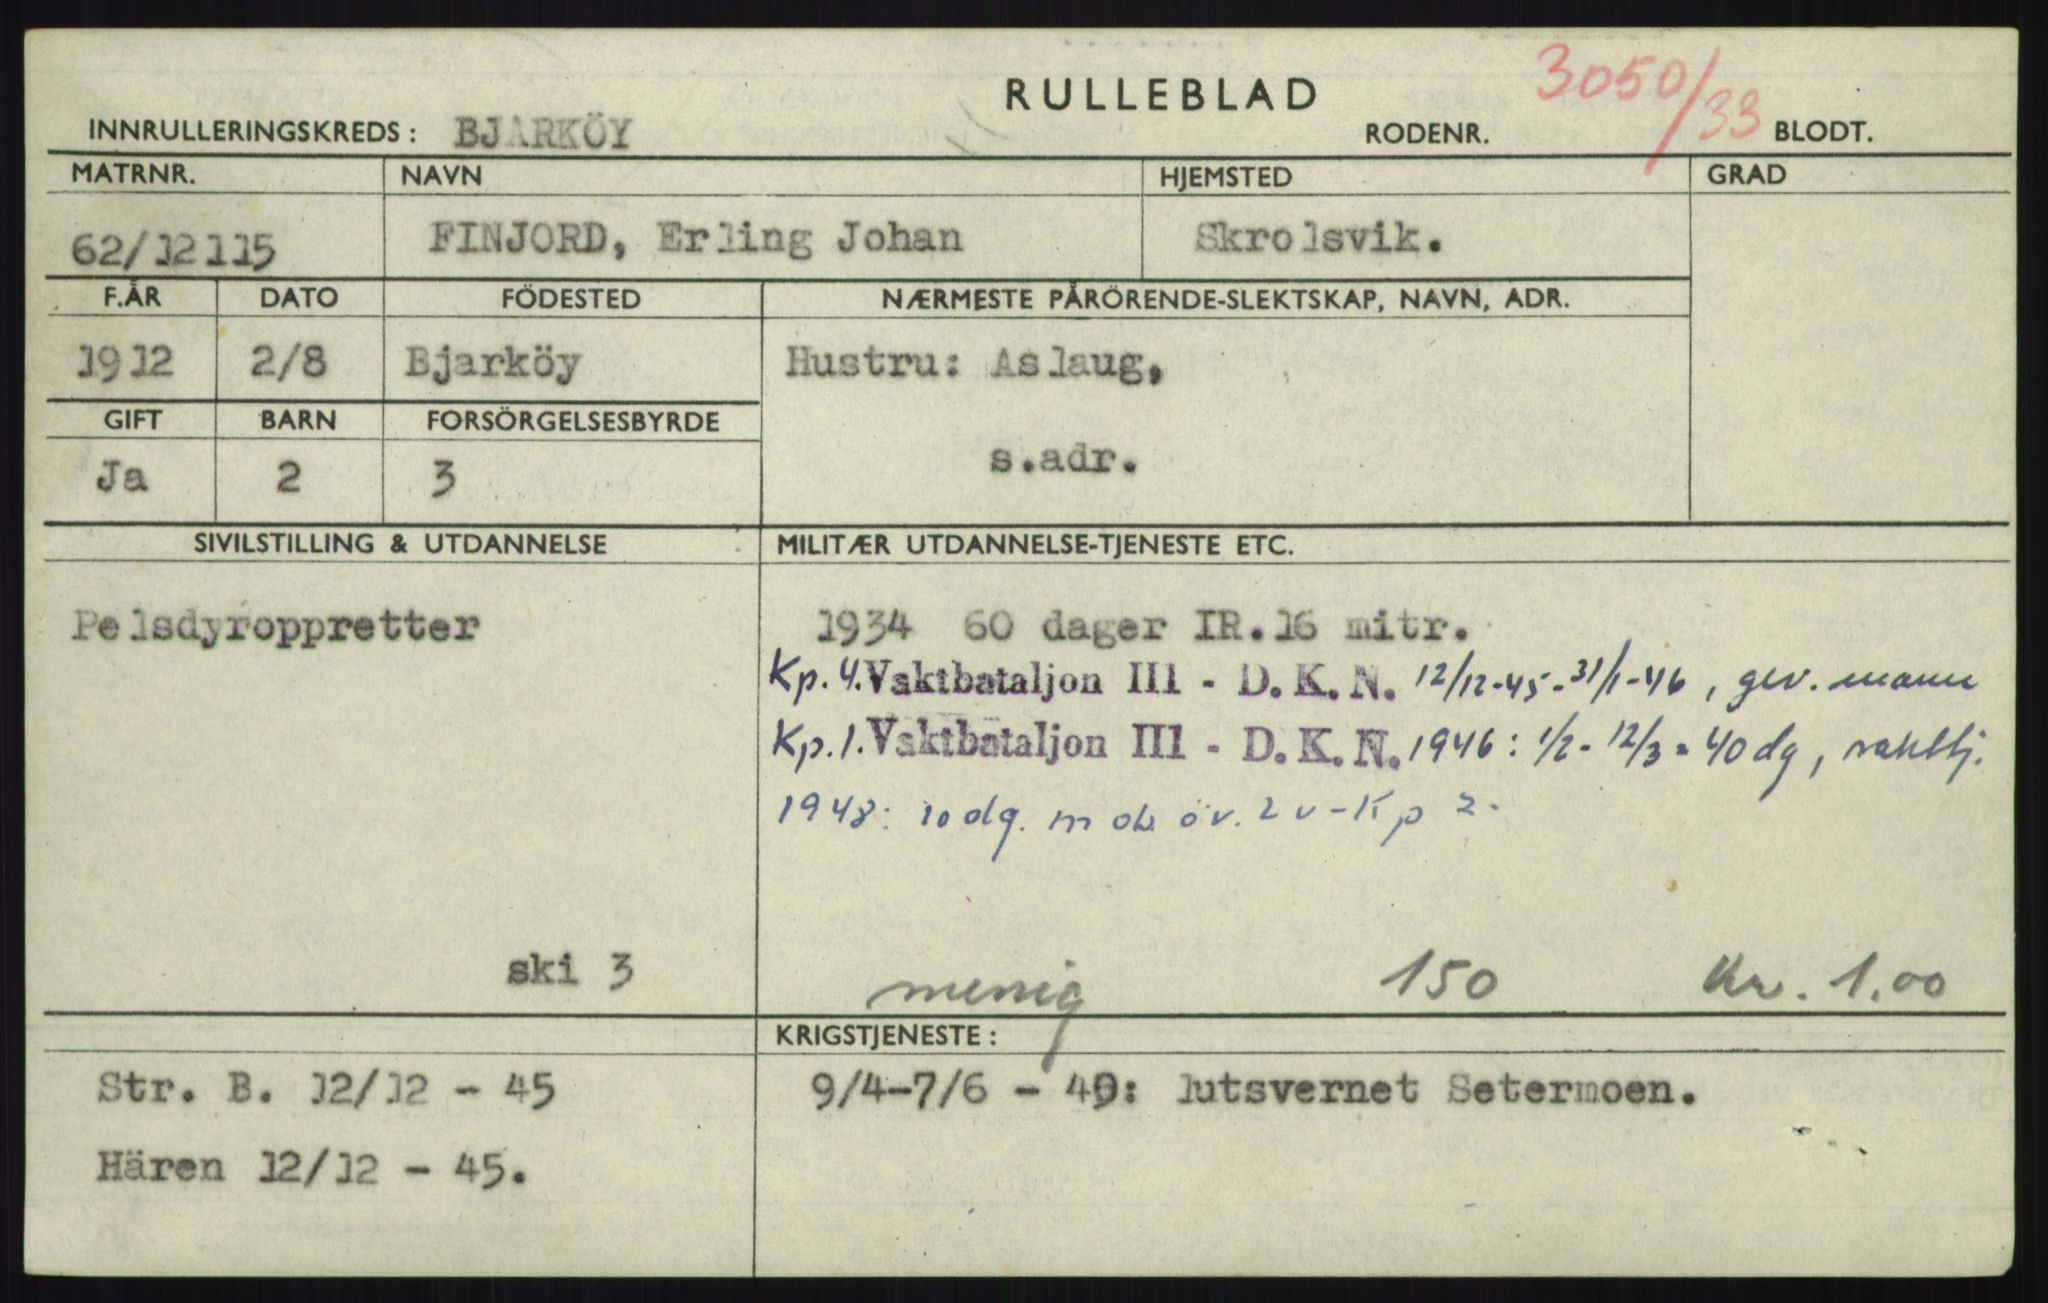 RULLEBLAD
3050/33
INNRULLERINGSKREDS: BJARKÖY RODENR. BLODT.
MATRNR. NAVN HJEMSTED GRAD
62/12115 FINJORD, Erling Johan Skrolsvik.
F.ÅR DATO FÖDESTED NÆRMESTE PÅRÖRENDE-SLEKTSKAP, NAVN, ADR.
1912 2/8 Bjarköy Hustru: Aslaug,
GIFT BARN FORSÖRGELSESBYRDE
Ja 2 3 s.adr.
SIVILSTILLING & UTDANNELSE MILITÆR UTDANNELSE-TJENESTE ETC.
Pelsdyroppretter 1934 60 dager IR.16 mitr.
Kp. 4. Vaktbataljon III - D. K. N. 12/12-45-31/1-46, gev. mann
Kp. 1. Vaktbataljon III - D. K. N. 1946: 1/2 - 12/3 = 40 dg, vakttj.
1948: 10 dg. mob. öv. 2 v-Kp 2.
ski 3 menig 150 Kr. 1.00
KRIGSTJENESTE:
Str. B. 12/12 - 45 9/4-7/6 - 40: lutsvernet Setermoen.
Hären 12/12 - 45.